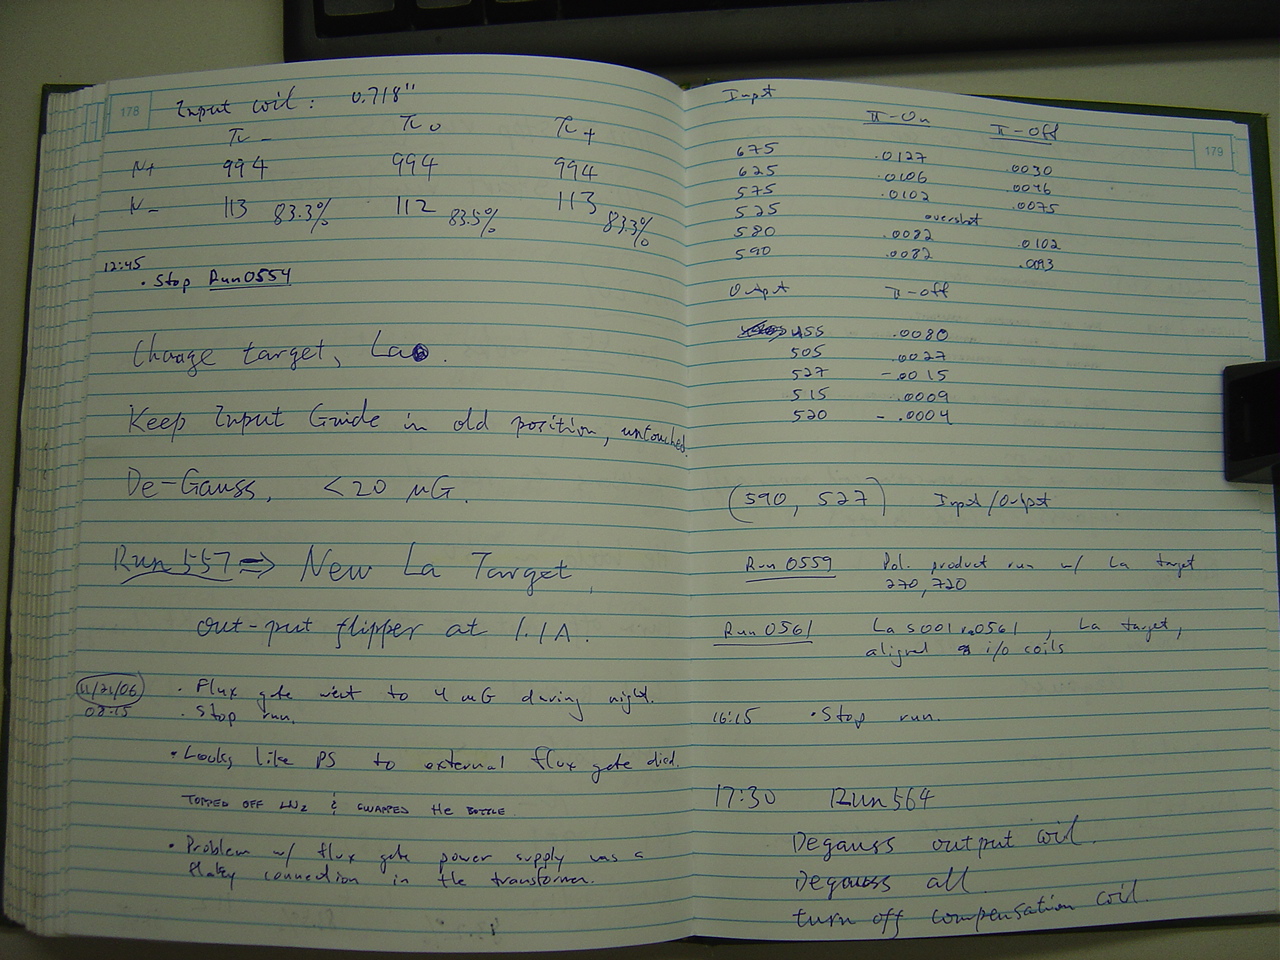 178
Input coil: 0.718"
π- π0 π+
N+ 994 994 994
N- 113 83.3% 112 83.5% 113 83.3%
12:45
· Stop Run0554
Change target, La.
Keep Input Guide in old position, untouched.
De-Gauss, <20 μG.
Run 557 ⇒ New La Target,
out-put flipper at 1.1A.
11/21/06 · Flux gate went to 4 mG during night.
08:15 · Stop run.
· Looks like PS to external flux gate died.
TOPPED OFF LN2 & SWAPPED He BOTTLE
· Problem w/ flux gate power supply was a
flaky connection in the transformer.
179
Input
π-On π-Off
675 .0127 .0030
625 .0106 .0046
575 .0102 .0075
525 overshot
580 .0082 .0102
590 .0082 .0093
Output π-off
455 .0080
505 .0027
527 -.0015
515 .0009
520 -.0004
(590, 527) Input/Output
Run 0559 Pol. product run w/ La target
270,720
Run 0561 La s001r0561, La target,
aligned i/o coils
16:15 · Stop run.
17:30 Run 564
Degauss output coil.
Degauss all.
turn off compensation coil.